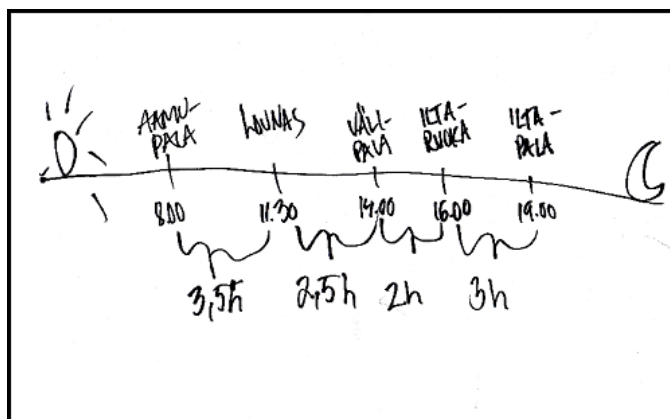 AAMU-
PALA
LOUNAS
VÄLI-
PALA
ILTA-
RUOKA
ILTA-
PALA
8.00
11.30
14.00
16.00
19.00
3,5h
2,5h
2h
3h